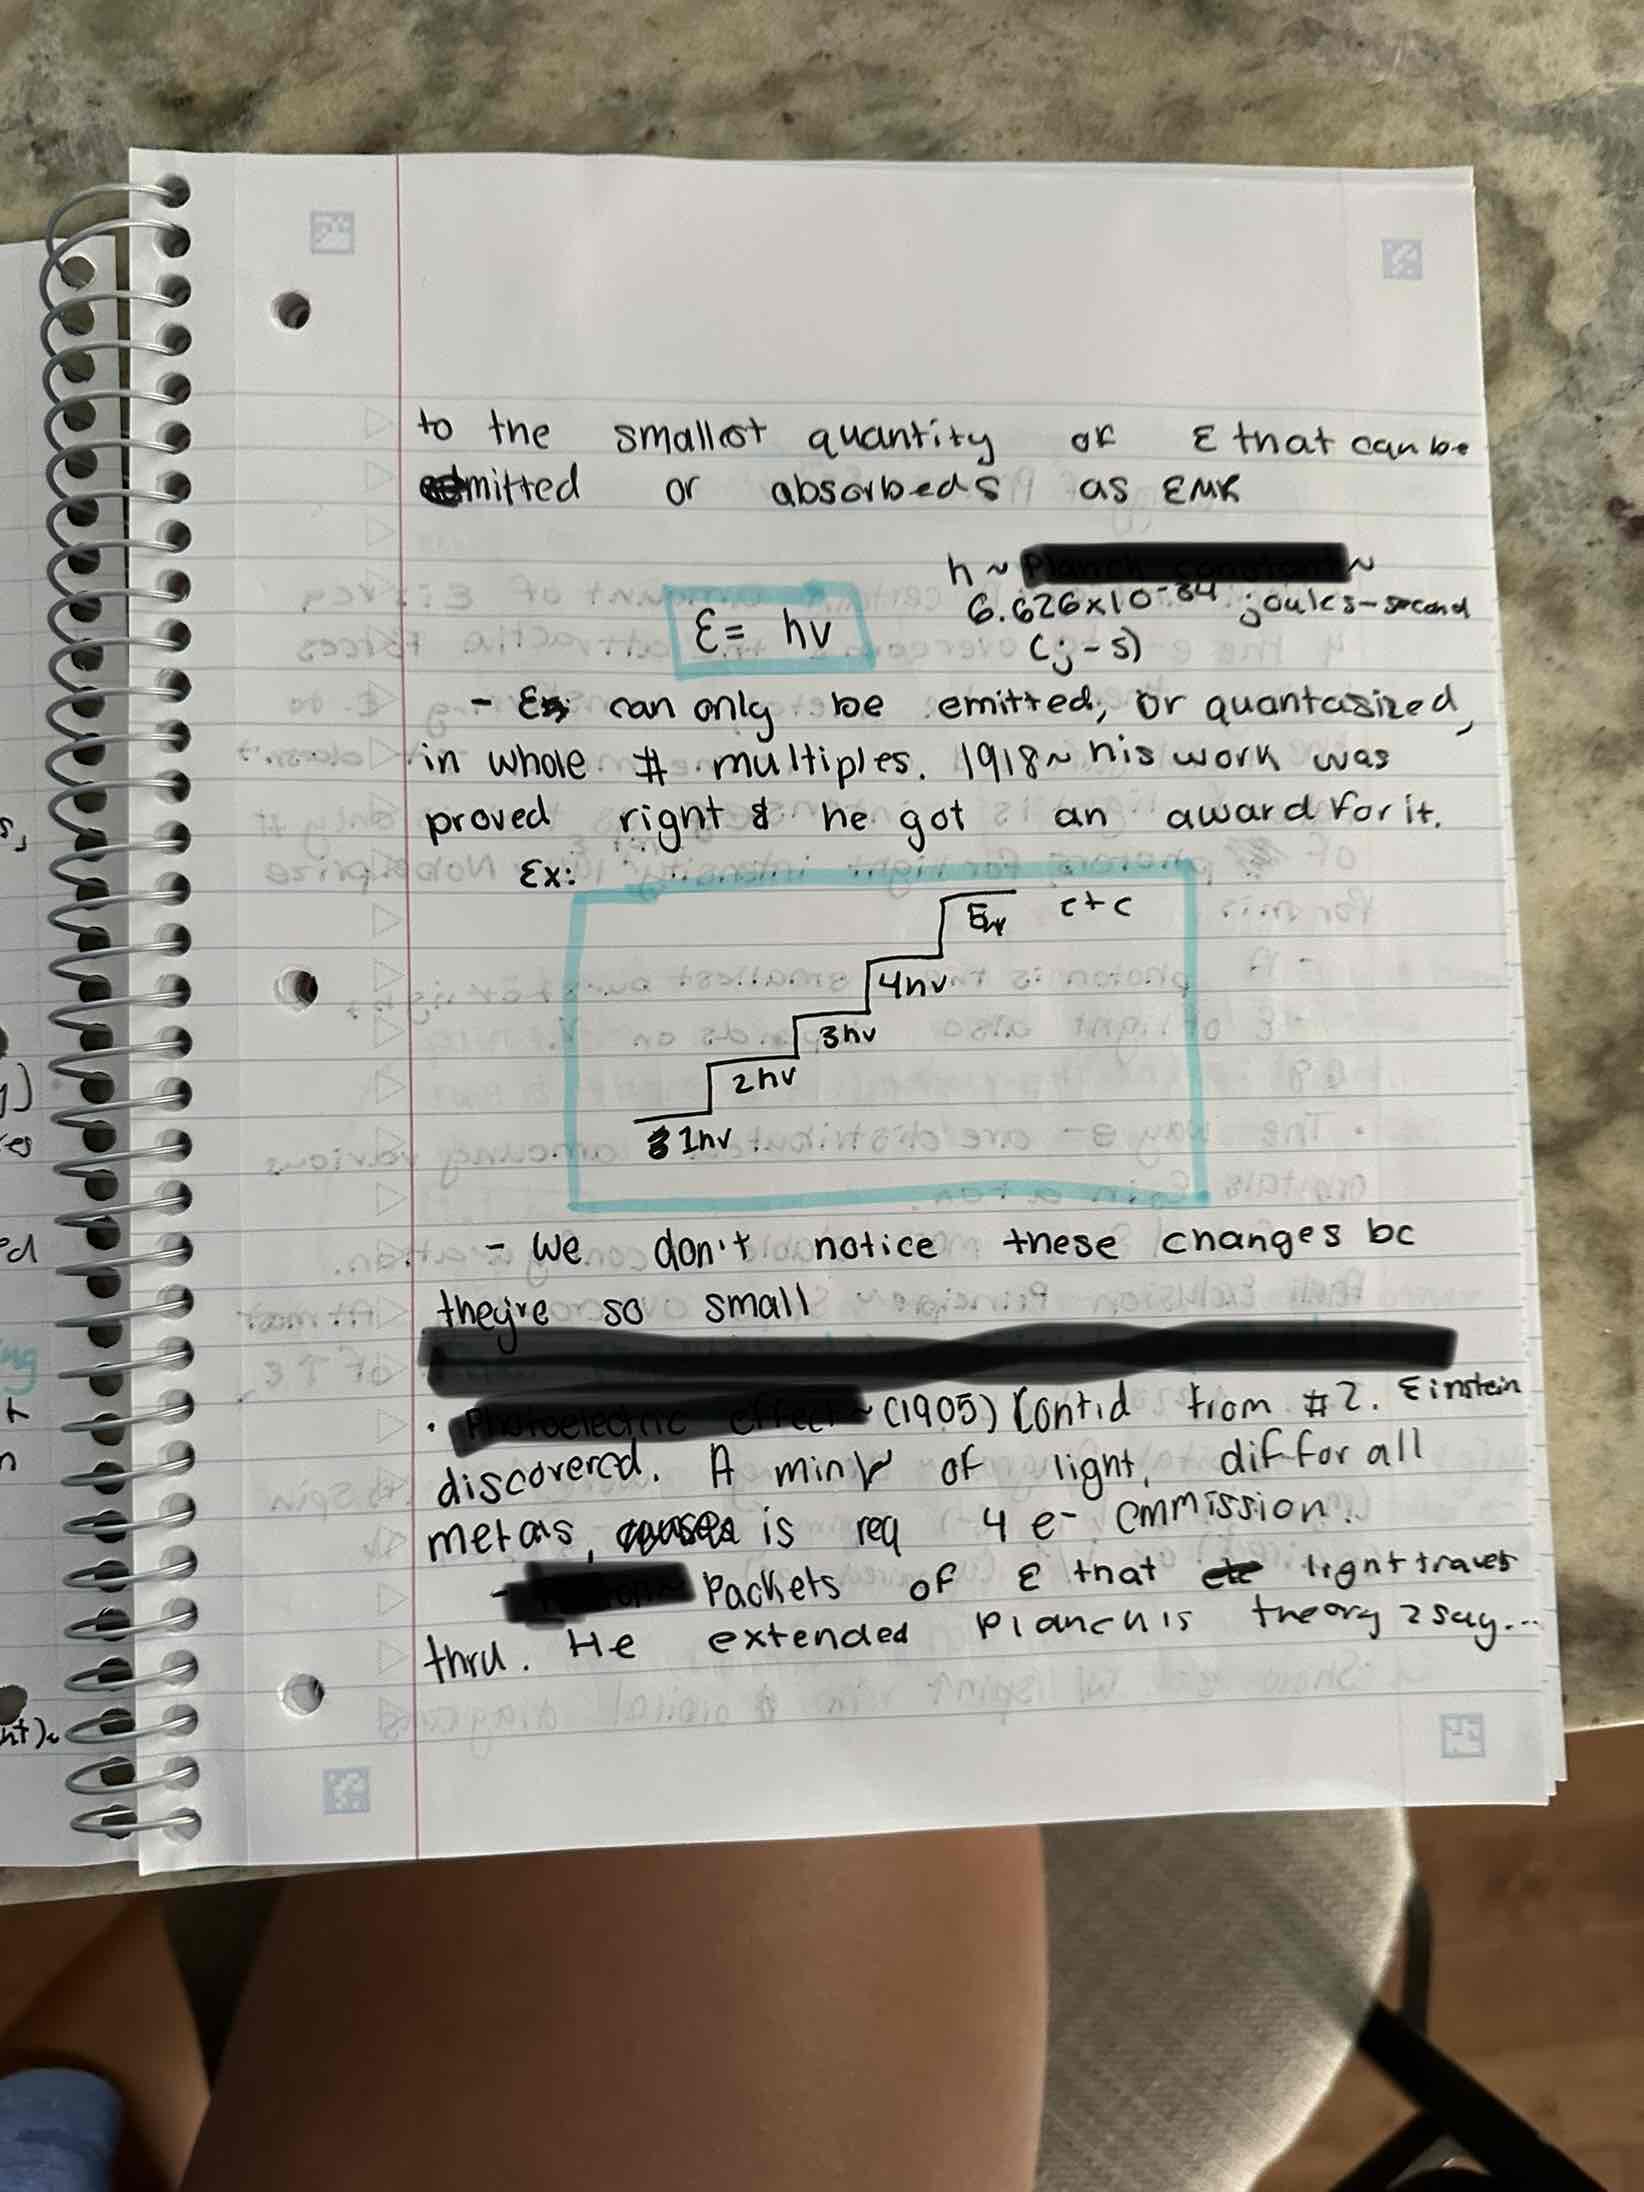 to the smallest quantity of E that can be
emitted or absorbeds as EMR
h ~ Planck constant ~
6.626x10-34 joules-second
(j-s)
E= hv
- E can only be emitted, or quantasized,
in whole # multiples. 1918~ his work was
proved right & he got an award for it.
Ex:
etc
4hv
3hv
2hv
1hv
- We don't notice these changes bc
they're so small
• Photoelectric effect ~ (1905) Cont'd from #2. Einstein
discovered. A min v of light, dif for all
metals, is req 4 e- emmission.
- Packets of E that light travels
thru. He extended Planck's theory 2 say...